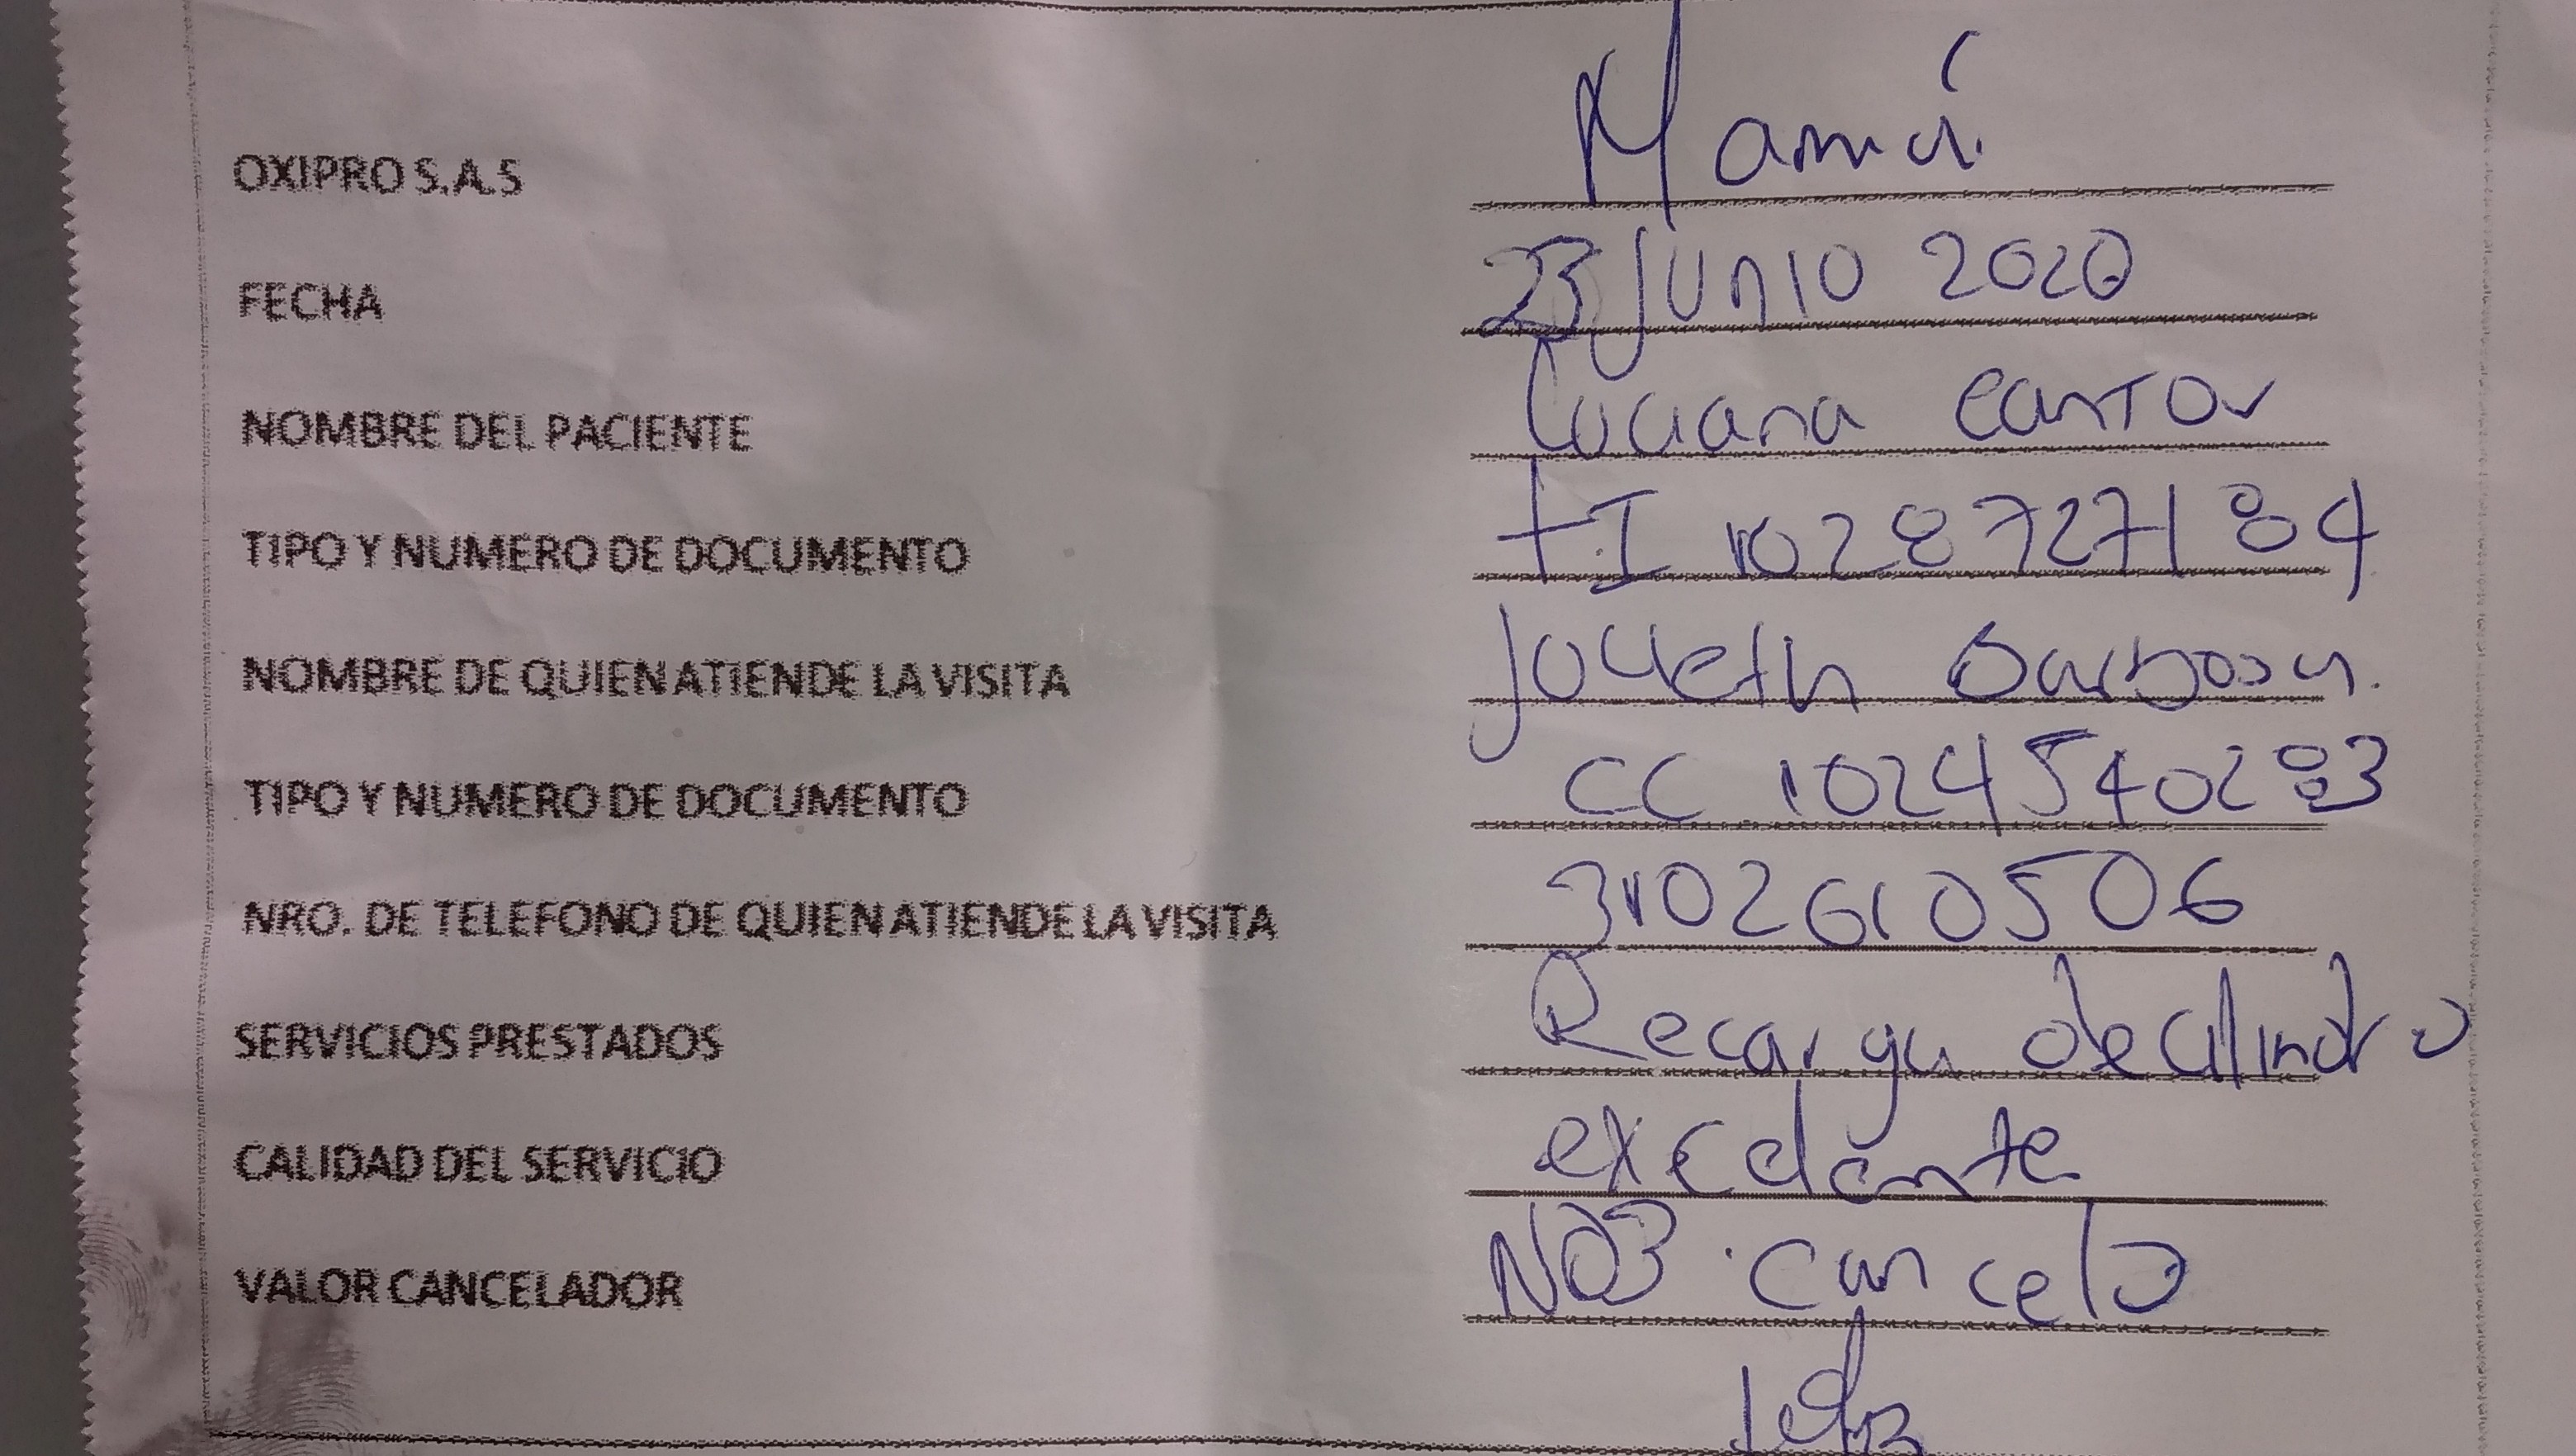 OXIPRO S.A.S Mamá.
FECHA 23 Junio 2020
NOMBRE DEL PACIENTE Luciana Cantor
TIPO Y NUMERO DE DOCUMENTO t.I 1028727184
NOMBRE DE QUIEN ATIENDE LA VISITA Barbosa.
TIPO Y NUMERO DE DOCUMENTO CC
NRO. DE TELEFONO DE QUIEN ATIENDE LA VISITA 3102610506
SERVICIOS PRESTADOS Recarga de cilindro
CALIDAD DEL SERVICIO excelente
VALOR CANCELADOR NO cancelo